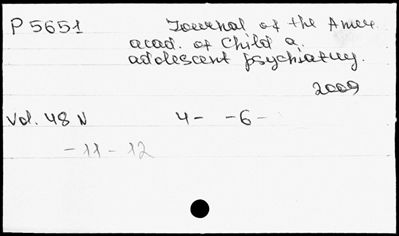 P 5651 Journal of the Amer.
acad. of Child a.
adolescent psychiatry.
2009
Vol. 48 N 4- -6-
-11-12